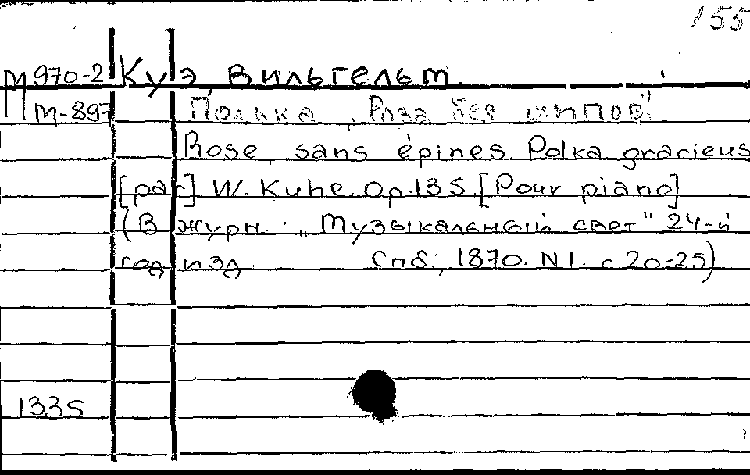 155
М 970-2 Куэ, Вильгельм.
М-897 Полька „Роза без шипов"
Rose sans épines. Polka gracieus
[par] W. Kuhe. Op. 135. [Pour piano]
(В журн. „Музыкальный свет" 24-й
год изд. Спб., 1870. N1. с 20-25)
1335